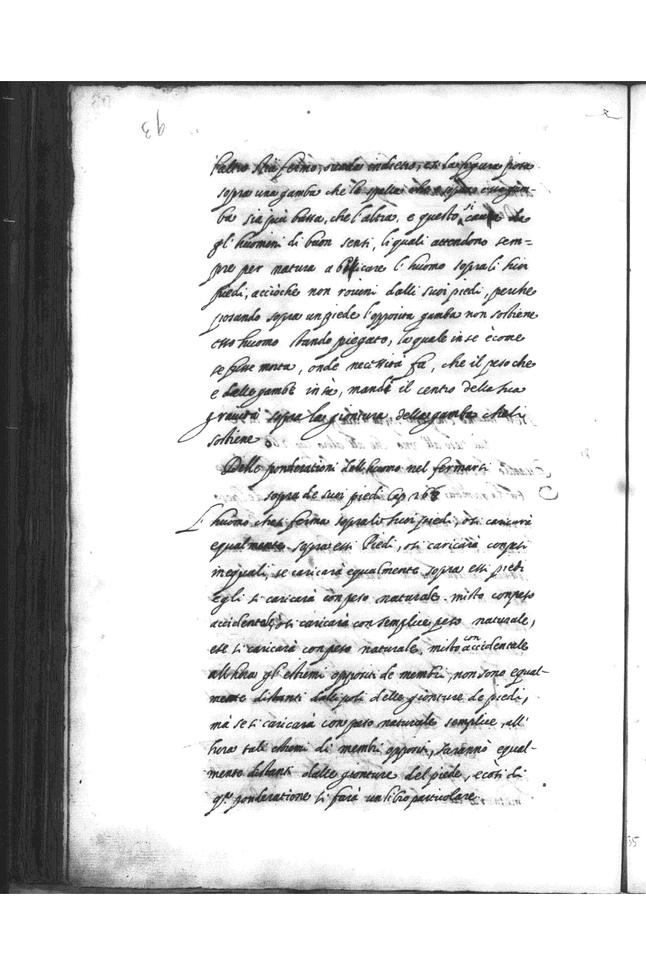 93
l'altro stia fermo, ouada indietro, et la figura posa
sopra una gamba che la spalla che è sopra essa gam-
ba sia più bassa, che l'altra, e questo si causa da
gl'huomini di buon senti, li quali attendono sem=
pre per natura a bilicare l'huomo sopra li suoi
piedi, accioche non rouini dalli suoi piedi, perche
posando sopra un piede l'opposita gamba non sostiene
esso huomo stando piegato, la quale in se è come
se fusse morta, onde necessità fa, che il peso che
e dalle gambe in sù, mandi il centro della sua
grauità sopra la giontura della gamba che lo
sostiene
Delle ponderationi dell huomo nel fermarsi
sopra de suoi piedi Cap
L'huomo che si ferma sopra li suoi piedi, o si caricarà
equalmente sopra essi Piedi, o si caricarà con pesi
inequali, se caricarà equalmente sopra essi piedi
egli si caricarà con peso naturale misto con peso
accidentale, o si caricarà con semplice peso naturale,
et se si caricarà con peso naturale, misto con accidentale
all'hora gl'estremi oppositi de membri, non sono equal-
mente distanti dalli poli delle gionture de piedi,
mà se si caricarà con peso naturale semplice, all'
hora tali estremi di membri oppositi, saranno equal-
mente distanti dalle gionture del piede, e così di
qta ponderatione si farà un libro particolare.